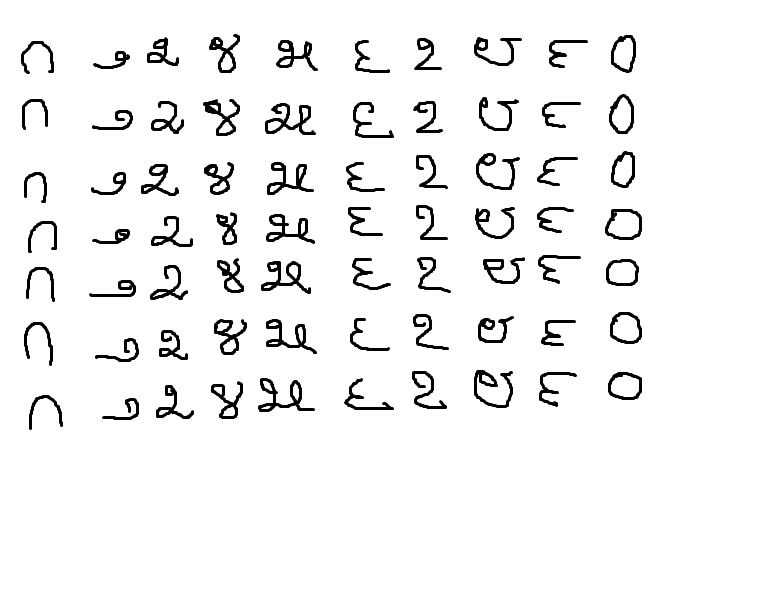 ೧ ೨ ೩ ೪ ೫ ೬ ೭ ೮ ೯ ೦
೧ ೨ ೩ ೪ ೫ ೬ ೭ ೮ ೯ ೦
೧ ೨ ೩ ೪ ೫ ೬ ೭ ೮ ೯ ೦
೧ ೨ ೩ ೪ ೫ ೬ ೭ ೮ ೯ ೦
೧ ೨ ೩ ೪ ೫ ೬ ೭ ೮ ೯ ೦
೧ ೨ ೩ ೪ ೫ ೬ ೭ ೮ ೯ ೦
೧ ೨ ೩ ೪ ೫ ೬ ೭ ೮ ೯ ೦